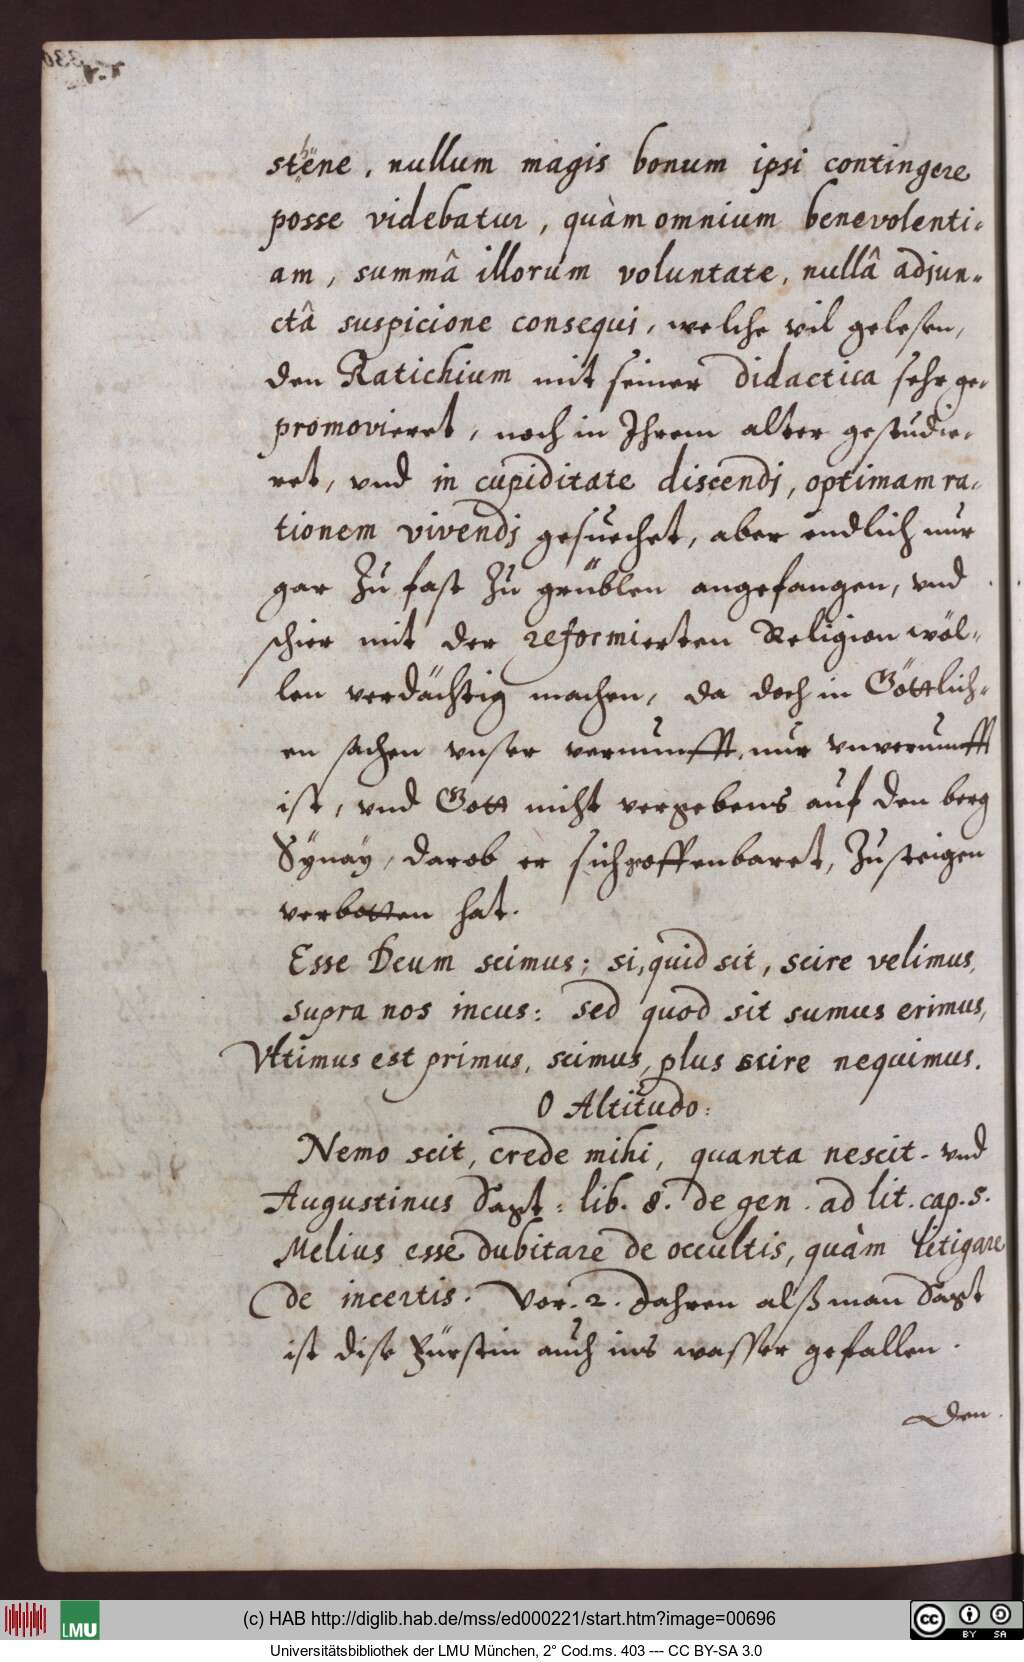 sthene, nullum magis bonum ipsi contingere
posse videbatur, quàm omnium benevolenti-
am, summâ illorum voluntate, nullâ adjun-
ctâ suspicione consequi, welche vil gelesen,
den Ratichium mit seiner didactica sehr ge-
promovieret, noch in Ihrem alter gestudie-
ret, vnd in cupiditate discendj, optimam ra-
tionem vivendj gesuechet, aber endlich nur
gar Zu fast Zu grüblen angefangen, vnd
schier mit der reformierten Religion wöl-
len verdächtig machen, da doch in Göttlich-
en sachen vnser vernunfft, nur vnvernunfft
ist, vnd Gott nicht vergebens auf den berg
Sÿnaÿ, darob er sich geoffenbaret, Zusteigen
verbotten hat.
Esse Deum scimus; si, quid sit, scire velimus,
supra nos imus: sed quod sit sumus erimus,
Vltimus est primus, scimus, plus scire nequimus.
O Altitudo:
Nemo scit, crede mihi, quanta nescit. vnd
Augustinus Sagt: lib. 8. de gen. ad lit. cap. 5.
Melius esse dubitare de occultis, quàm litigare
de incertis. Vor. 2. Jahren alß man Sagt
ist dise Fürstin auch ins wasser gefallen.
Den
(c) HAB http://diglib.hab.de/mss/ed000221/start.htm?image=00696
LMU
cc BY SA
Universitätsbibliothek der LMU München, 2° Cod.ms. 403 --- CC BY-SA 3.0